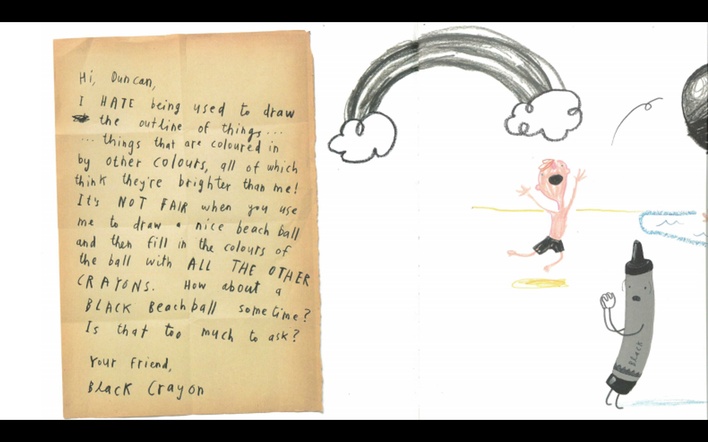 Hi, Duncan,
I HATE being used to draw
the outline of things...
...things that are coloured in
by other colours, all of which
think they're brighter than me!
It's NOT FAIR when you use
me to draw a nice beach ball
and then fill in the colours of
the ball with ALL THE OTHER
CRAYONS. How about a
BLACK Beachball sometime?
Is that too much to ask?
Your friend,
Black Crayon
Black